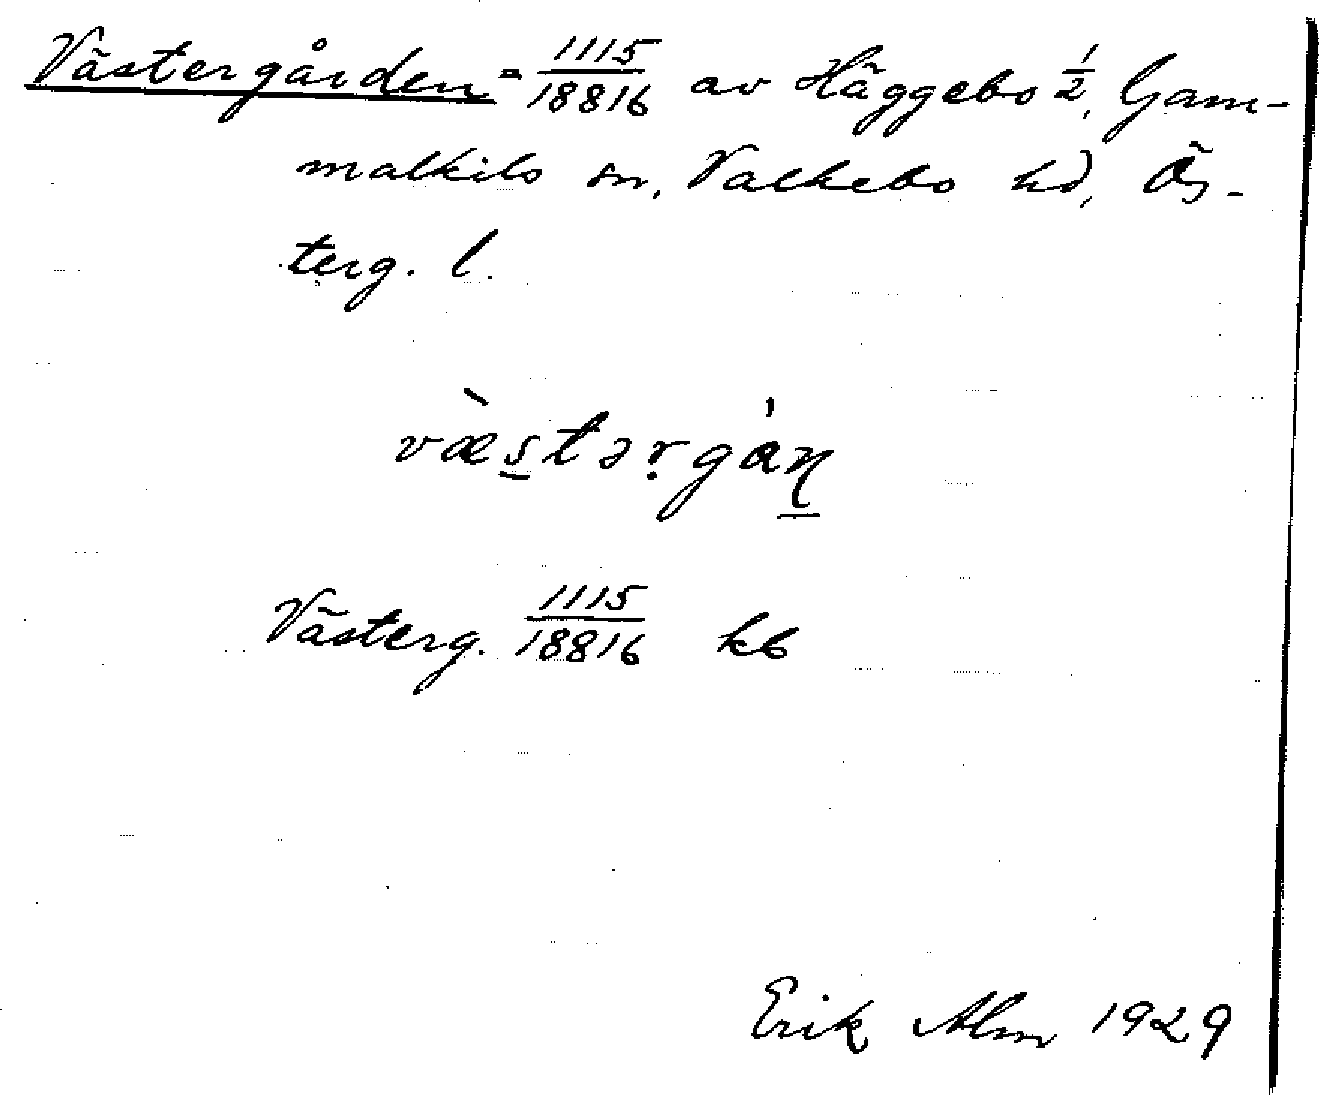 Västergården = 1115/18816 av Häggebo 1/2, Gam-
malkils sn, Valkebo hd, Ös-
terg. l.
væ̀stərgȧɳ
Västerg. 1115/18816 kb
Erik Alm 1929